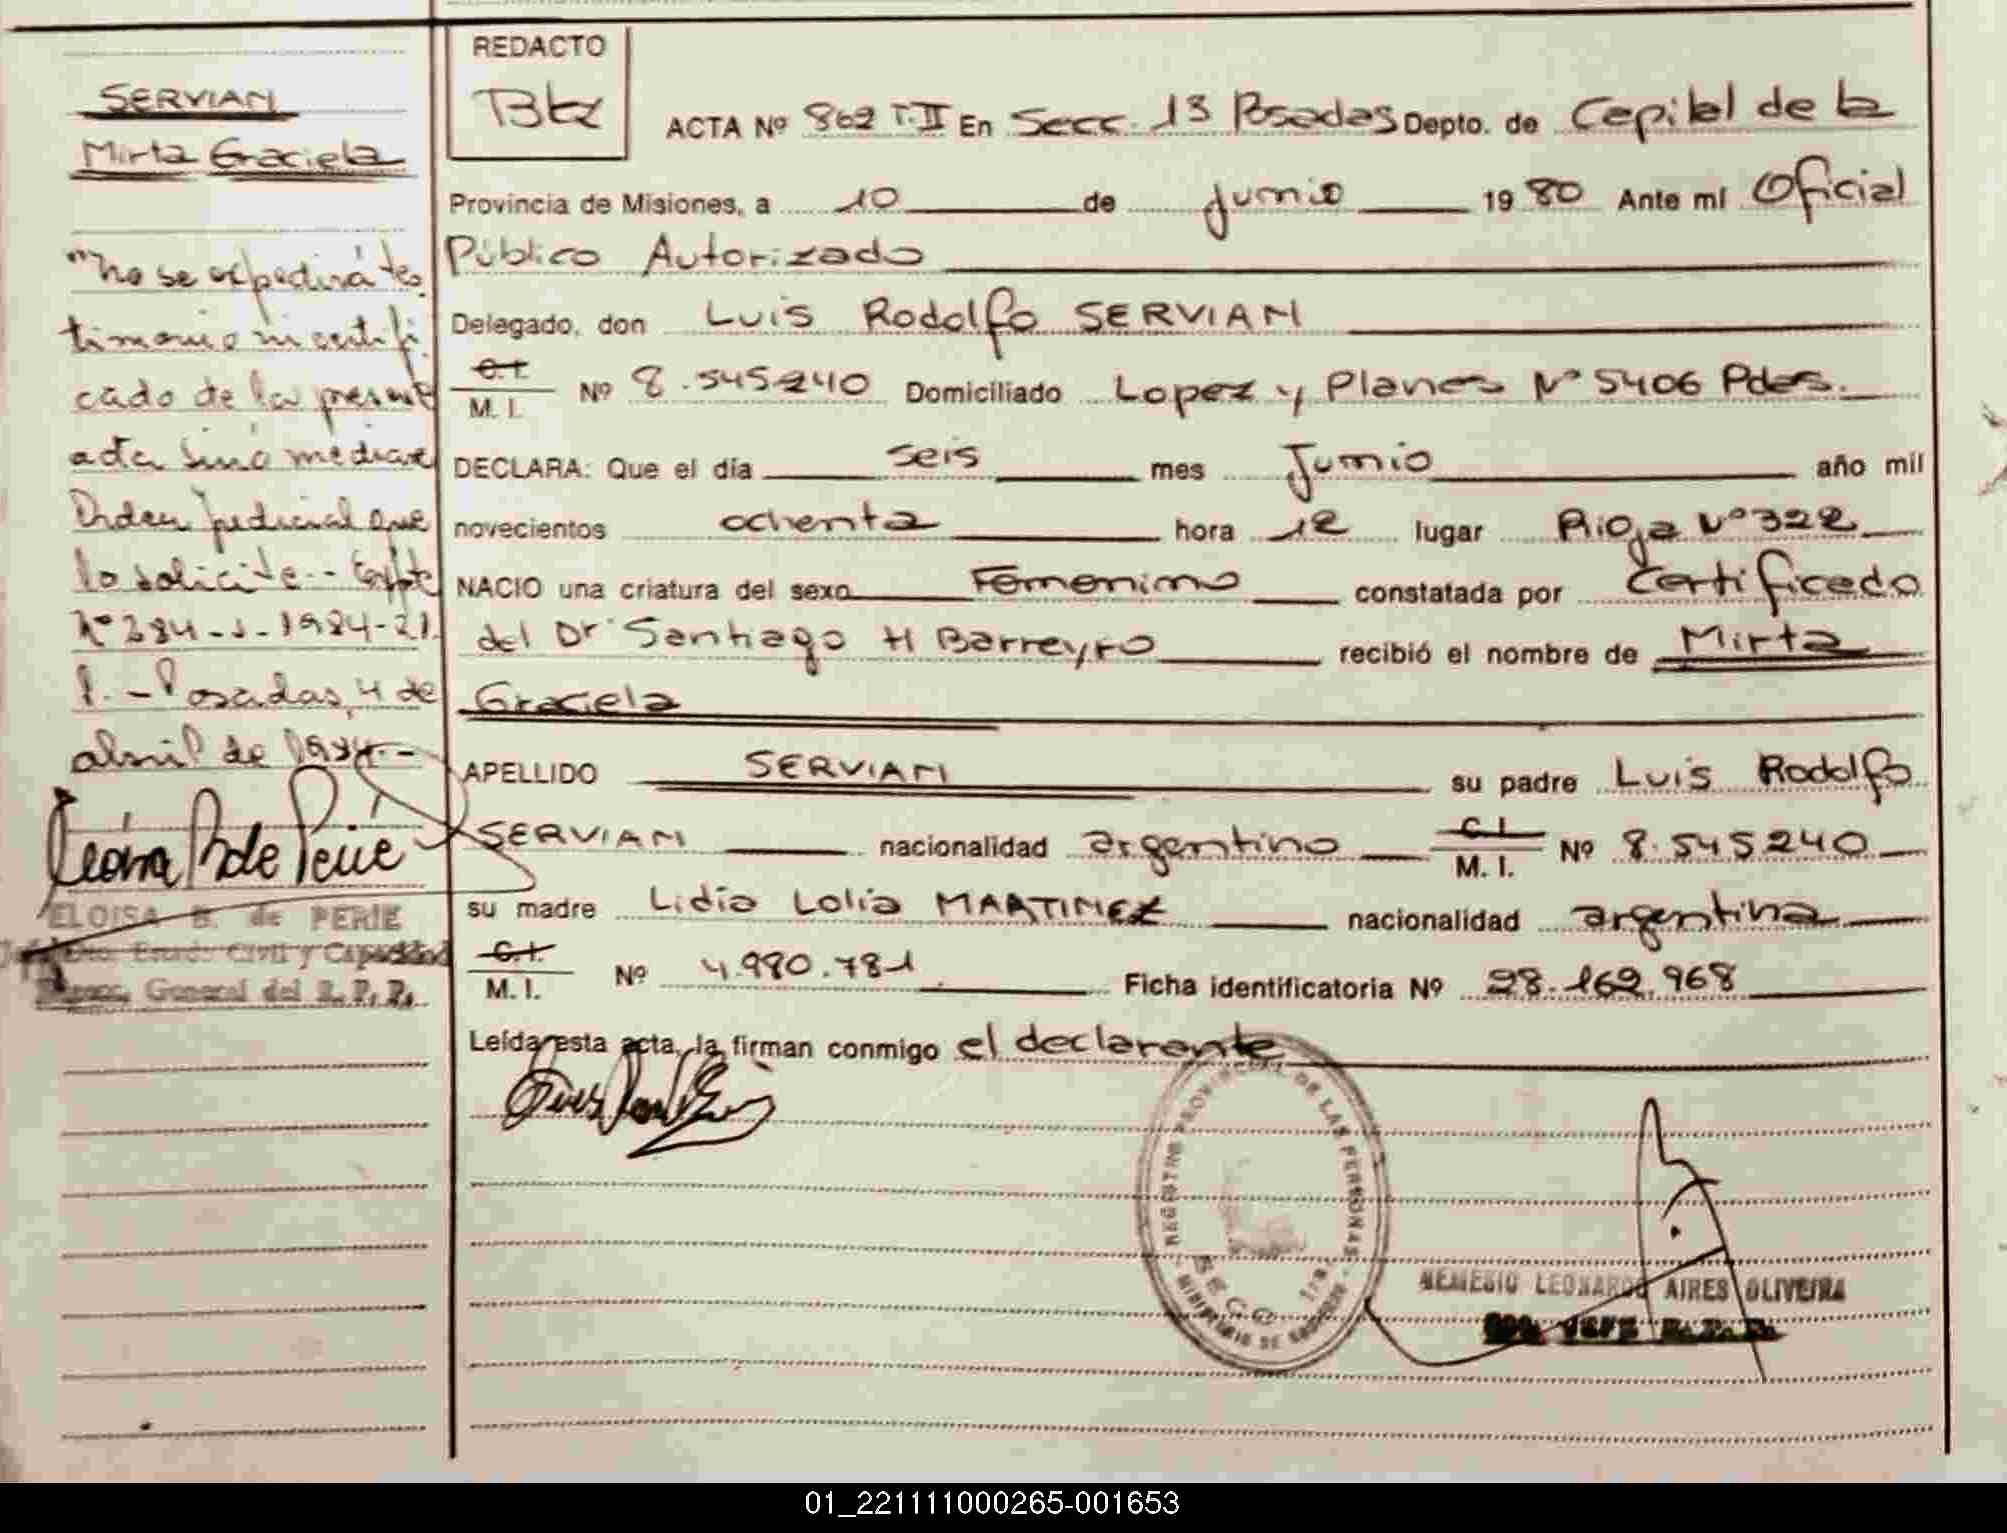 SERVIAN
Mirta Graciela
"No se expedirá tes
timonio ni certifi
cado de la present
acta sinó mediante
Orden judicial que
lo solicite.- Expte
Nº 284-J-1984-21
P.- Posadas, 4 de
abril de 1984.-
ELOISA B. de PERIE
Dto. Estado Civil y Capacidad
General del R. P. P.
REDACTO
Btz
ACTA Nº 862 T.II En Secc. 13 Posadas Depto. de Capital de la
Provincia de Misiones, a 10 de Junio 1980 Ante mí Oficial
Público Autorizado
Delegado, don Luis Rodolfo SERVIAN
C.I.
M. I. Nº 8.545240 Domiciliado Lopez y Planes Nº 5406 Pdas.
DECLARA: Que el día seis mes Junio año mil
novecientos ochenta hora 12 lugar Rioja Nº 322
NACIO una criatura del sexo Femenino constatada por Certificado
del Dr Santiago H Barreyro recibió el nombre de Mirta
Graciela
APELLIDO SERVIAN su padre Luis Rodolfo
SERVIAN nacionalidad argentino C.I.
M. I. Nº 8.545240
su madre Lidia Lolia MARTINEZ nacionalidad argentina
C.I.
M. I. Nº 4.990.781 Ficha identificatoria Nº 28.162.968
Leída esta acta, la firman conmigo el declarante
REGISTRO PROVINCIAL DE LAS PERSONAS
SECC.
MINISTERIO DE GOBIERNO
NEMESIO LEONARDO AIRES OLIVEIRA
JEFE R. P. P.
01_221111000265-001653